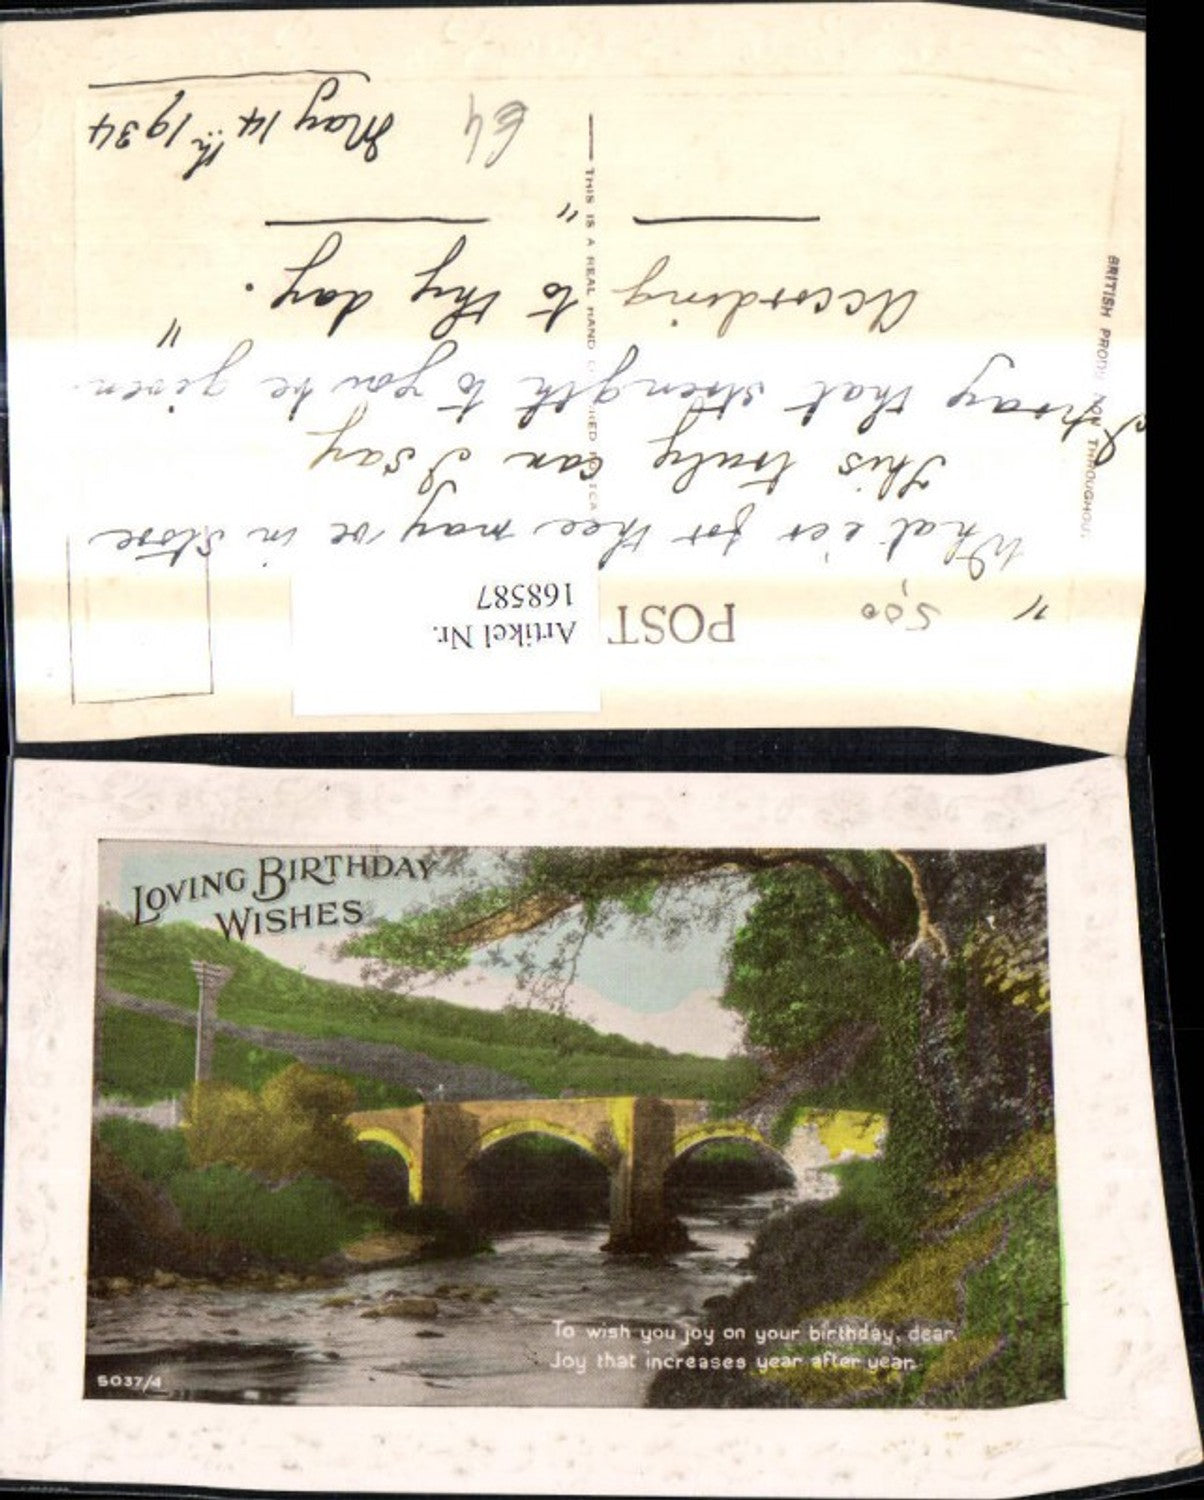 POST
Artikel Nr.
168587
5,00
"
What e'er for thee may be in store
This truly can I say
I pray that strength to you be given
According to thy day.
"
"
64
May 14th 1934
THIS IS A REAL HAND
BRITISH
THROUGHOUT
LOVING BIRTHDAY
WISHES
To wish you joy on your birthday, dear,
Joy that increases year after year.
5037/4